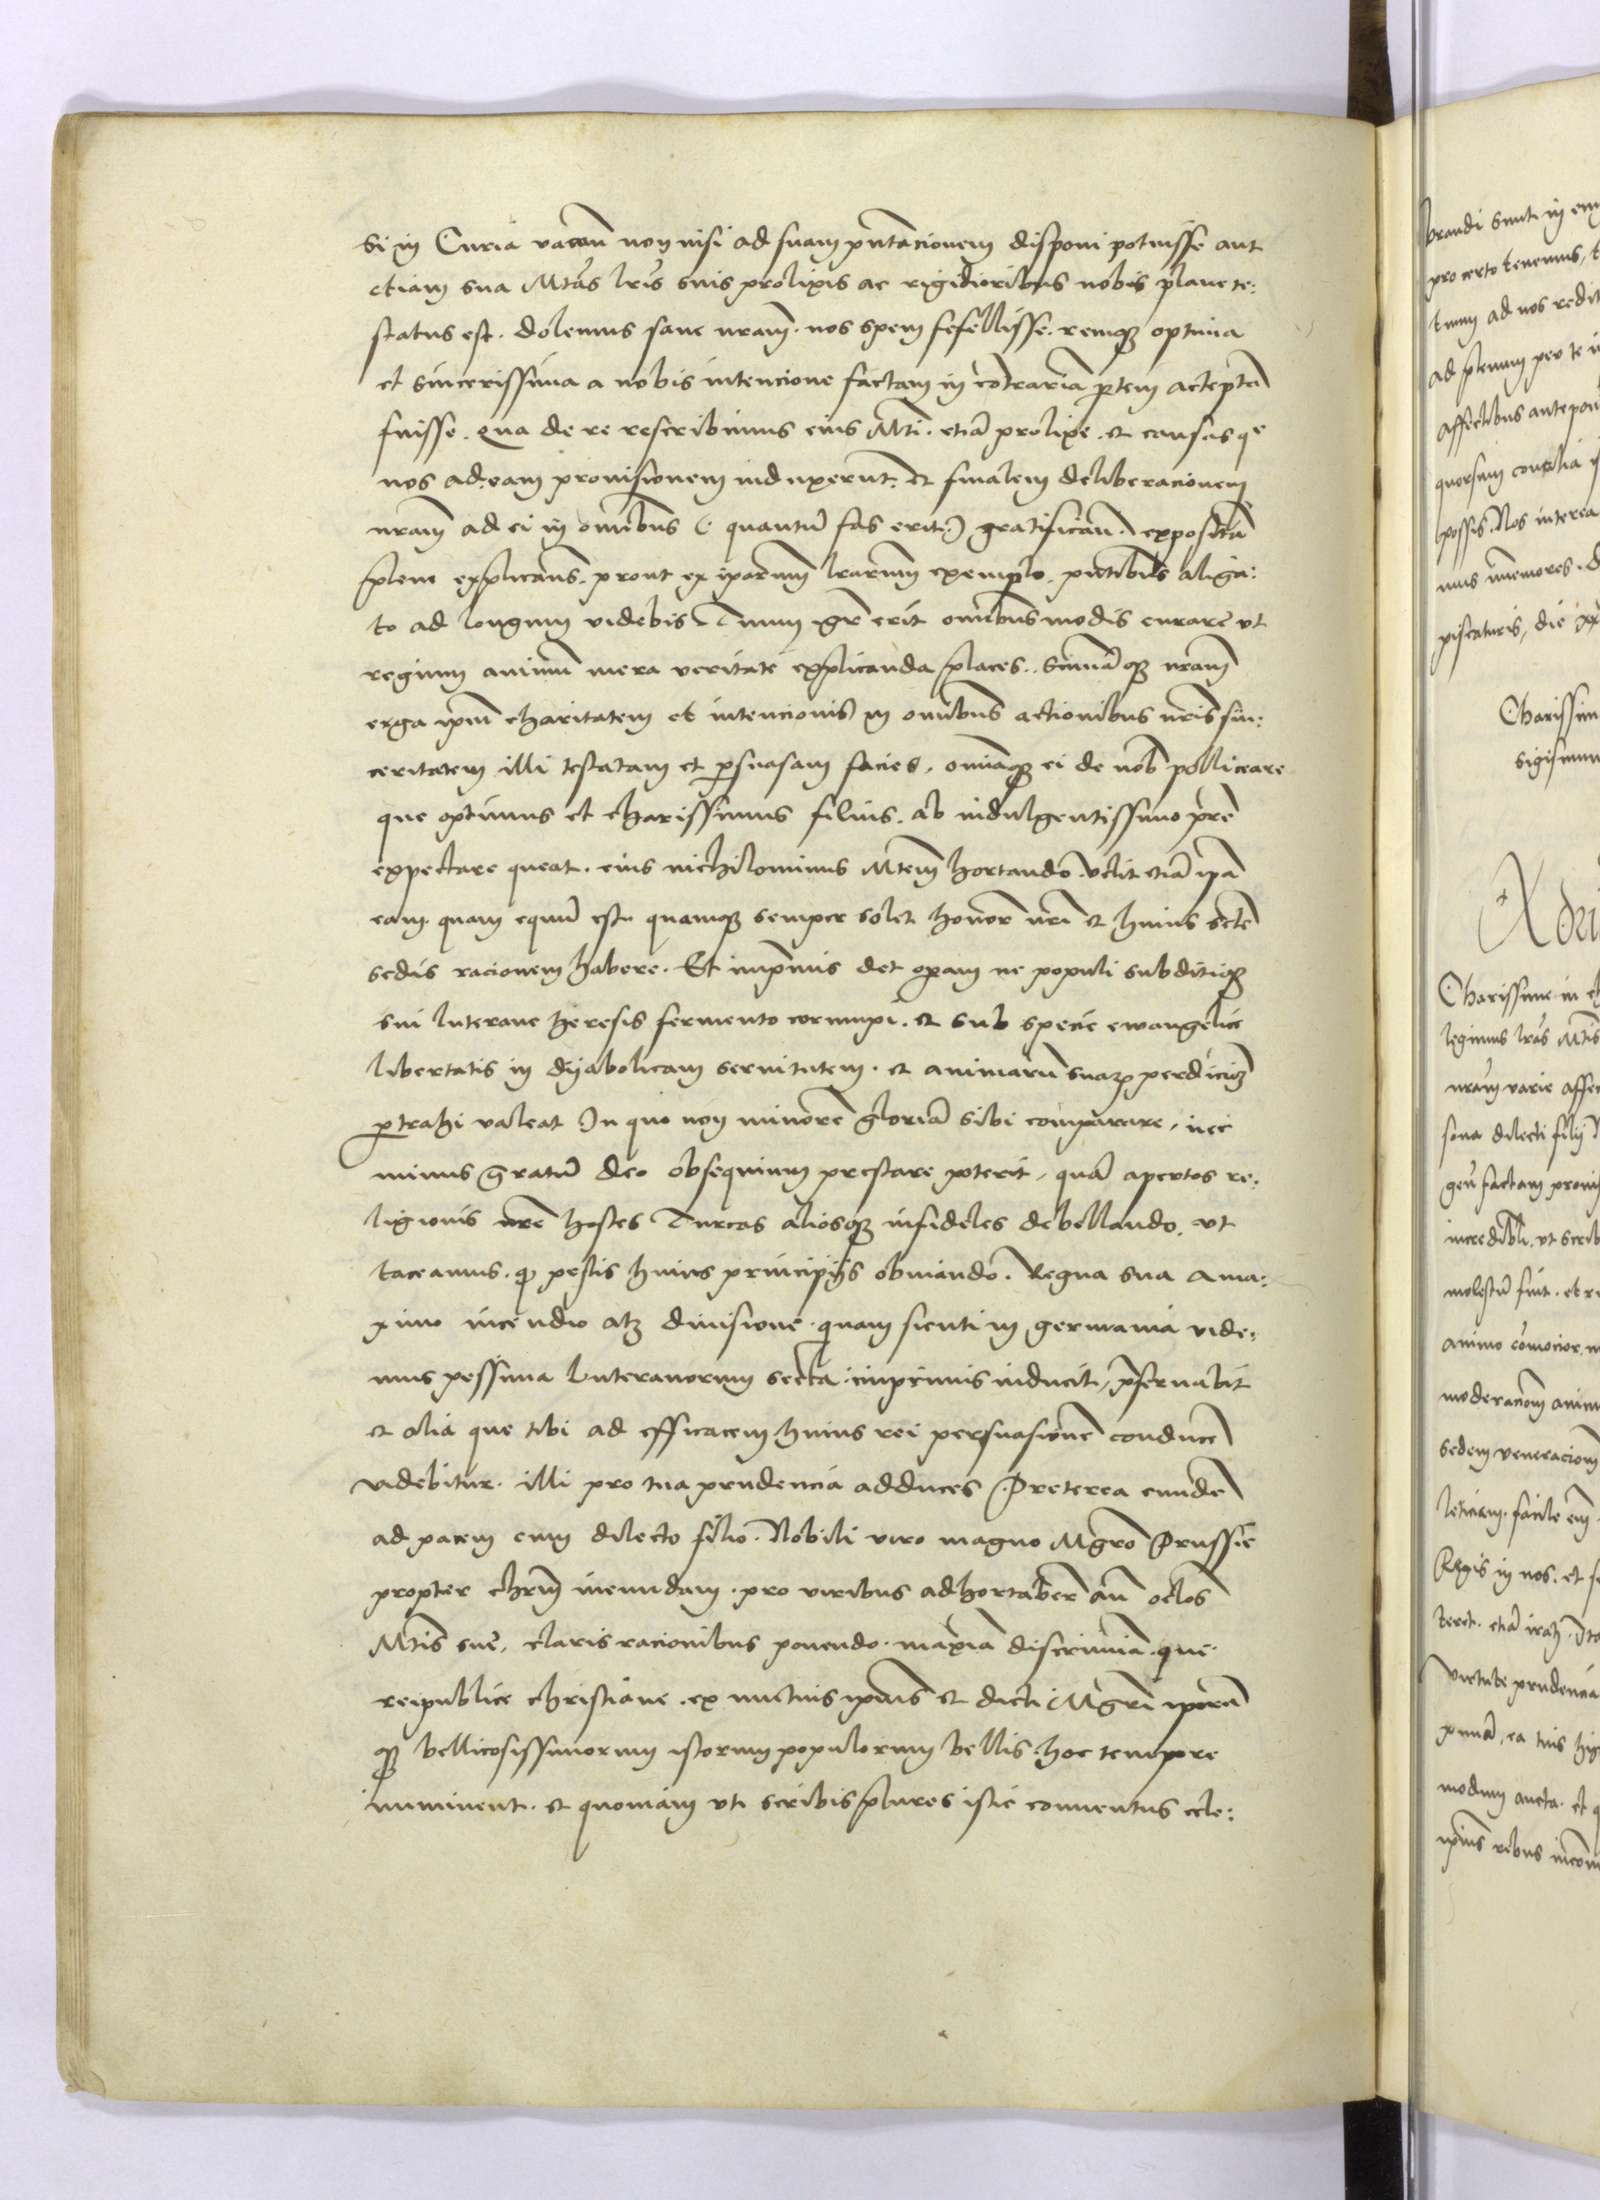 si in Curia vacan̄ non nisi ad suam pn̄tacionem disponi potuisse aut
etiam sua Mtās lr̄is suis prolixis ac rigidioribus nobis plane te:
status est. dolemus sane nr̄am. nos spem fefellisse. remq̨ optima
et sincerissima a nobis intencione factam in cōtraria p̄tem acceptā
fuisse. Qua de re rescribimus eius Mti. etiā prolixe. et causas qᵉ
nos ad eam prouisionem induxerunt. et finalem deliberacionem
nr̄am ad ei in om̄ibus (: quantū fas erit:) gratifican̄. expositā
plene explican̄s. prout ex ip̄arum lr̄arum exemplo. pn̄tibus aliga:
to ad longum videbis. Tuum igr̄ erit omnibus modis curare vt
regium animū mera veritate explicanda places. summāq̨ nr̄am
erga ip̄m charitatem et intencionis in om̄ibus actionibus nr̄is sin:
ceritatem illi testatam et p̄suasam facies. omīaq̨ ei de nob̄ polliceare
que optimus et charissimus filius. ab indulgentissimo pr̄e
expectare queat. eius nichilominus Mtēm hortando. velit etiā ip̄a
eam. quam equū est. quamq̨ semper solet honor̄ nr̄i et huius sctē
sedis racionem habere. Et imp̄mis det op̄am ne populi subditiq̨
sui luterane heresis fermento corrumpi. et sub specie ewangelice
libertatis in dyabolicam seruitutem. et animarū suaꝝ perdiciōꝫ
p̄trahi valeat. In quo non minorē gloriā sibi comparare, nec
minus gratū deo obsequium prestare poterit, quā apertos re:
ligionis nr̄e hostes Turcas aliosq̨ infideles debellando. vt
taceamus. q̨ pestis huius principijs obuiando. Regna sua a ma:
ximo incendio atq̨ diuisione. quam sicuti in germania vide:
mus pessima Luteranorum secta imprimis inducit, p̄seruabit
et alia que tibi ad efficacem huius rei persuasionē conducē
videbitur. illi pro tua prudencia adduces. Preterea eundē
ad pacem cum dilecto filio. Nobili viro magno Mgr̄o Prussie
propter chr̄m ineundam. pro viribus adhortaber̄ an̄ oc̄los
Mtis sue, claris racionibus ponendo. maxīa discrimina. que
reipublice christiane. ex mutuis ip̄ius et dicti Mgr̄i ip̄orū
q̨ bellicosissimorum istorum populorum bellis. hoc tempore
imminent. et quoniam vti scribis plures istic conuentus cele:
brandi sunt. in
pro certo tenemus,
tuum ad nos redit
ad plenum per te
affectibus antepon
quorsum consilia
possis. Nos interea
mus memores.
piscatoris, die
Charissim
Sigismun
Adri
Charissime in
legimus lr̄as Mtis
nr̄um varie affec
sona dilecti filij
factam prouis
incredibli. vt scrib
molestū fuit. et
animo cōmocior.
moderacionē anim
sedem veneracionē
leticiam. facile em̄
Regis in nos. et
teret. etiā
virtute prudencia
, ea tuis
modum aucta. et
ip̄ius rebus incom